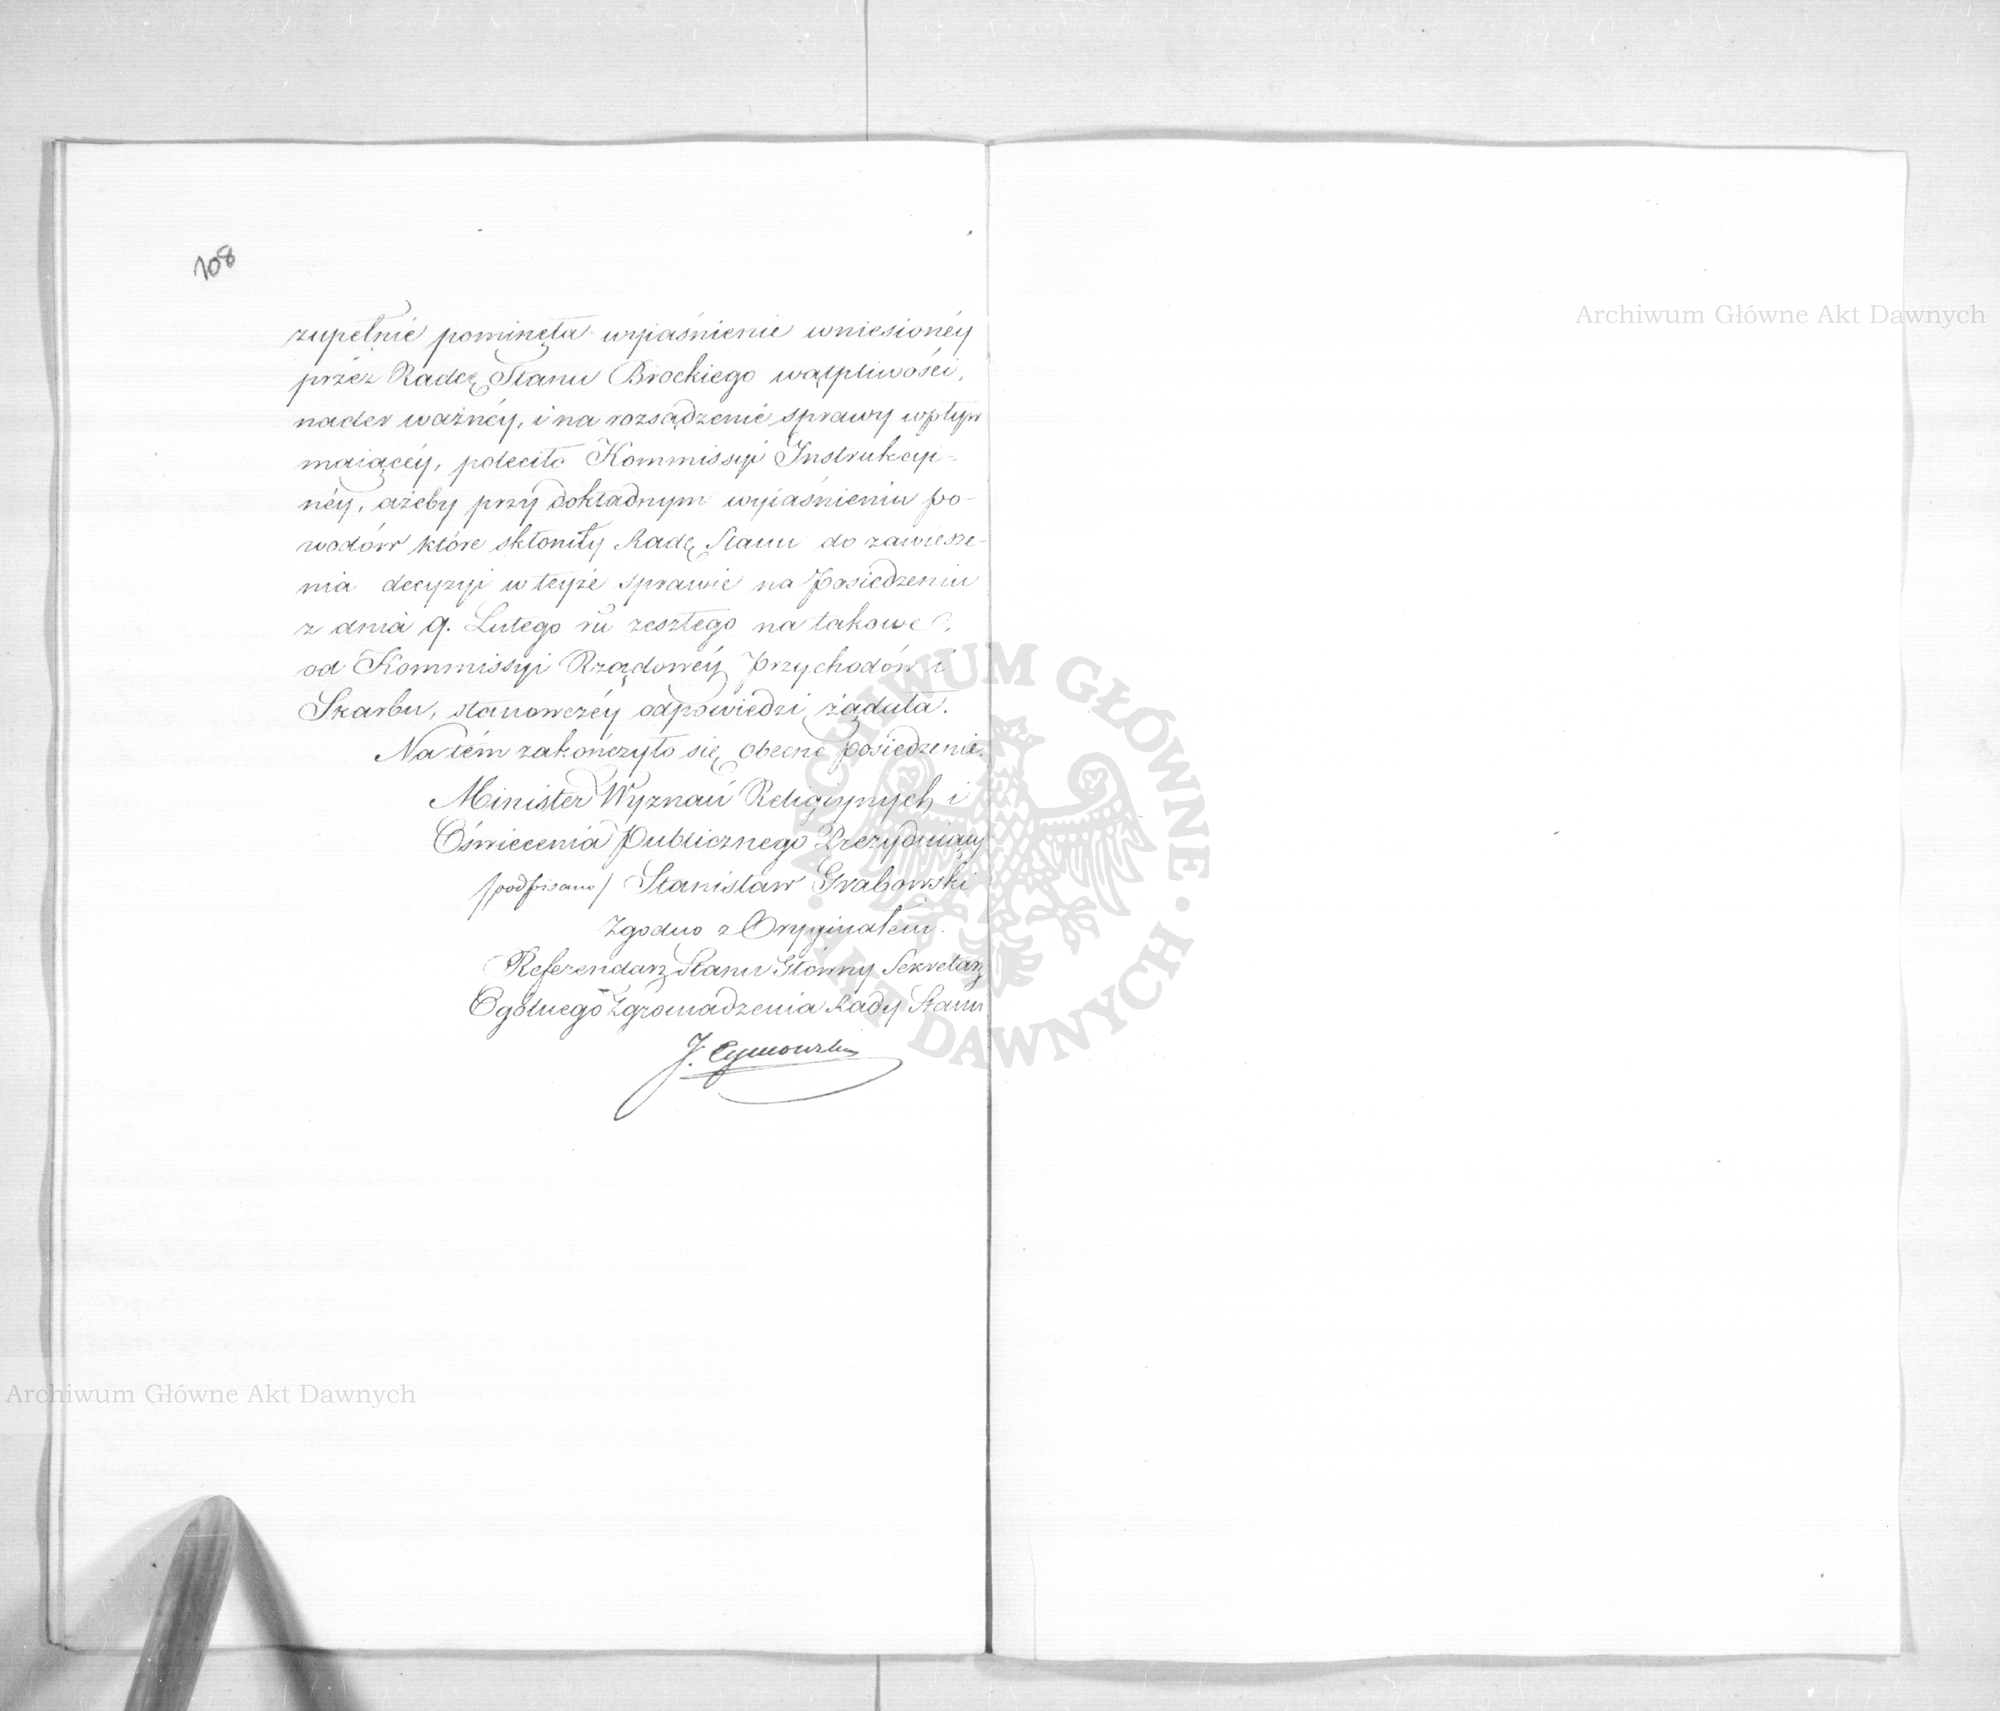 108
zupełnie pominęła wyiaśnienie wniesionéy
przez Radcę Stanu Brockiego wątpliwości,
nader ważnéy, i na rozsądzenie sprawy wpływ
maiącéy, poleciła Kommissyi Instrukcyi-
néy, ażeby przy dokładnym wyiaśnieniu po-
wodów które skłoniły Radę Stanu do zawiesze-
nia decyzyi w teyże sprawie na Posiedzeniu
z dnia 9. Lutego ru zeszłego na takowe
od Kommissyi Rządowéy Przychodów i
Skarbu, stanowczéy odpowiedzi żądała.
Na tém zakończyło się obecne posiedzenie.
Minister Wyznań Religiynych i
Oświecenia Publicznego Prezyduiący
/podpisano/ Stanisław Grabowski
Zgodno z Oryginałem.
Referendarz Stanu Główny Sekretarz
Ogólnego Zgromadzenia Rady Stanu
J.
Archiwum Główne Akt Dawnych
ARCHIWUM GŁÓWNE · AKT DAWNYCH ·
Archiwum Główne Akt Dawnych